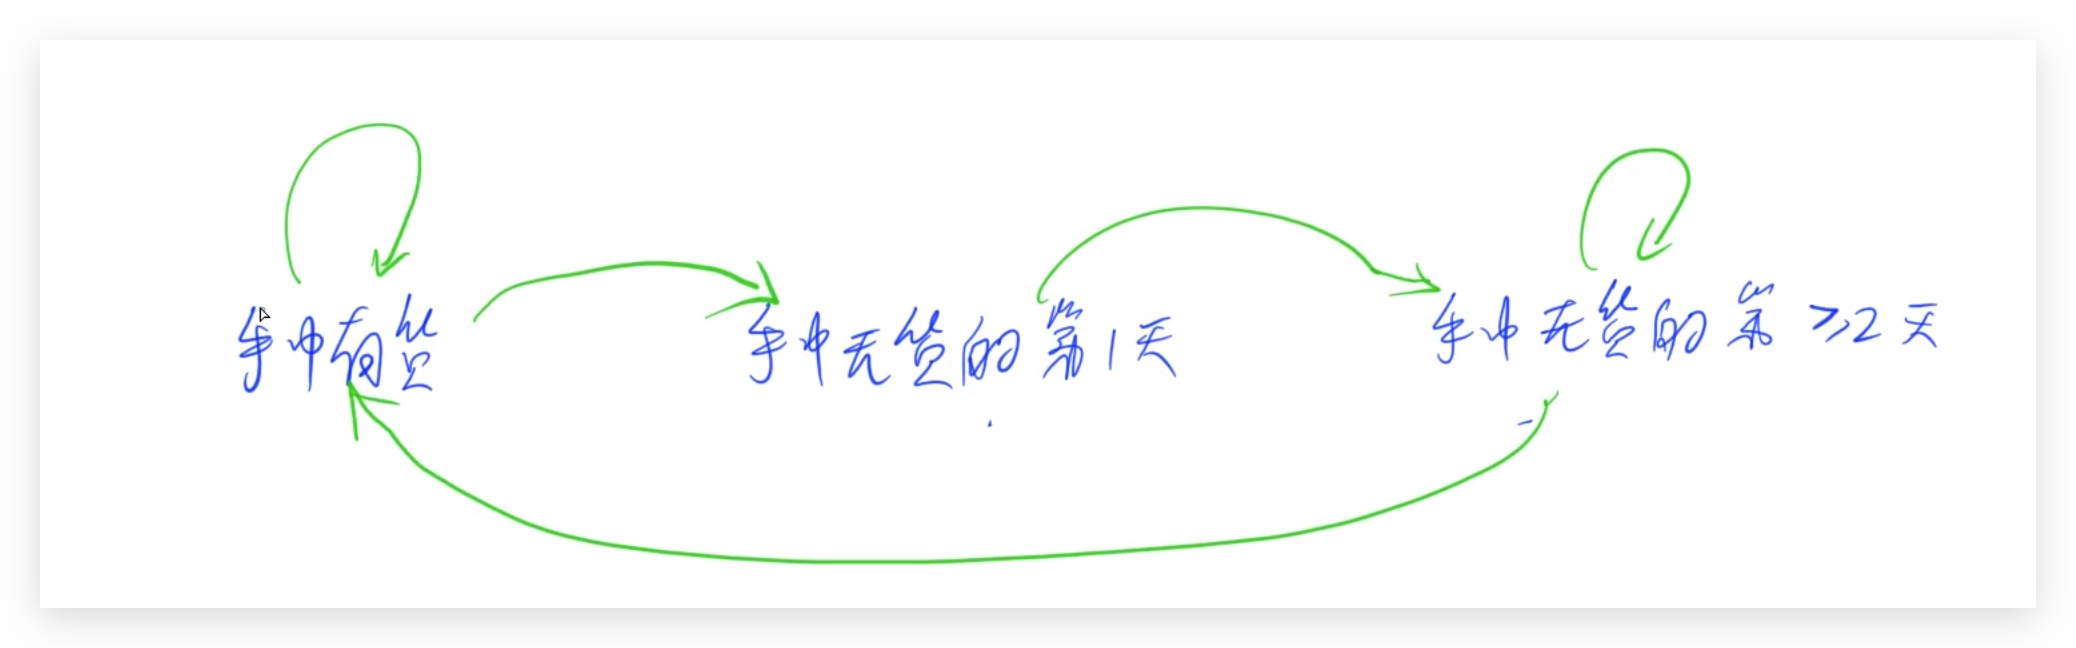 手中有货
手中无货的第1天
手中无货的第≥2天